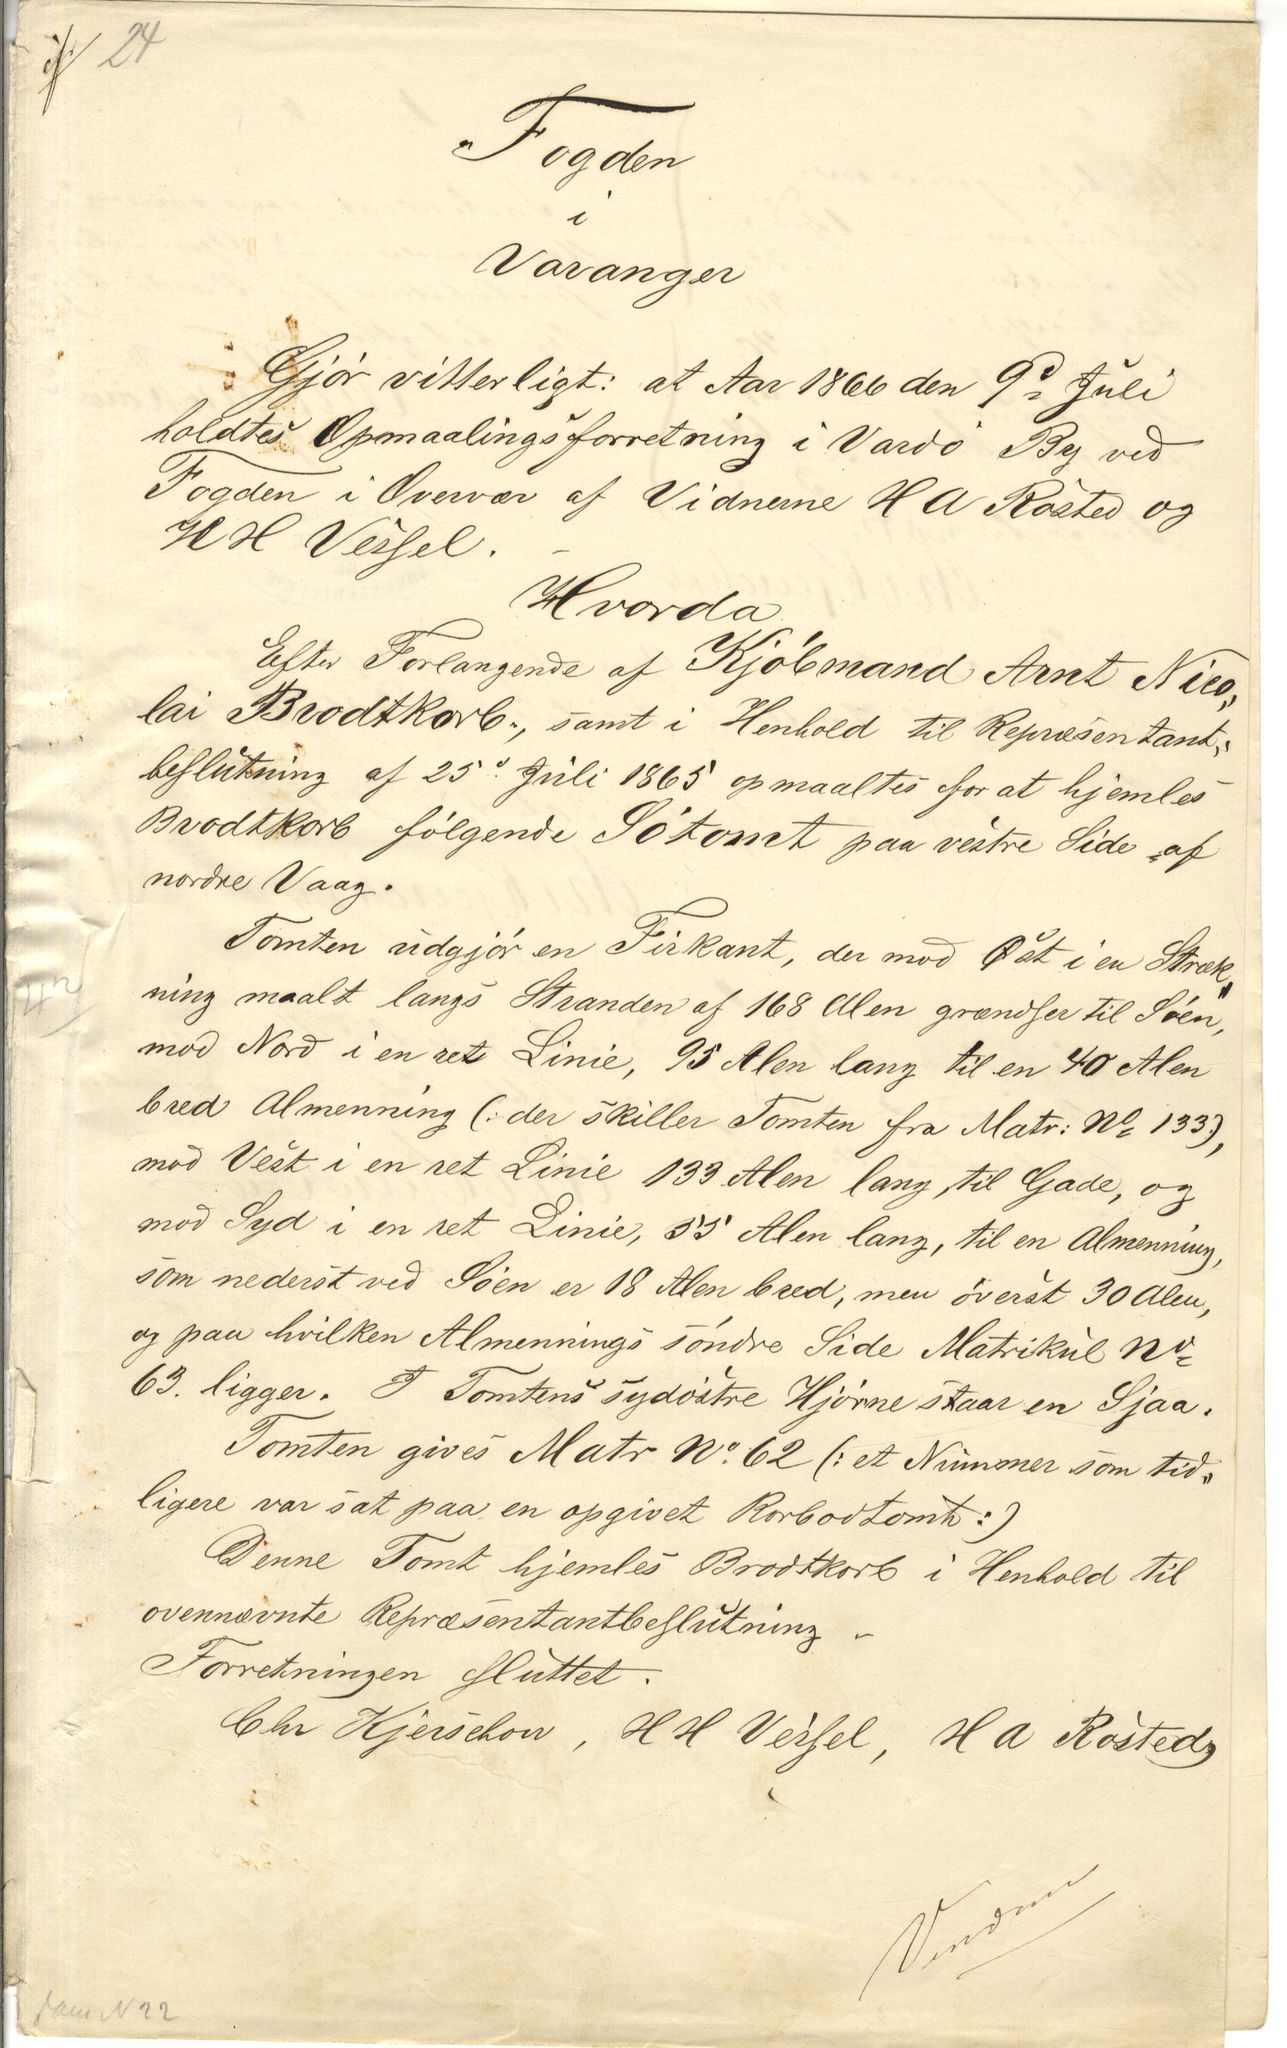 24
Fogden
i
Varanger
Gjör vitterligt: at Aar 1866 den 9de Juli
holdtes Opmaalingsforretning i Vardö By ved
Fogden i Overvær af Vidnerne H A Rösted og
H H Vessel.
Hvorda
Efter Forlangende af Kjöbmand Arnt Nico„
lai Brodtkorb, samt i Henhold til Repræsentant„
beslutning af 25d. Juli 1865 opmaaltes for at hjemles
Brodtkorb fölgende Sötomt paa vestre Side af
nordre Vaag.
Tomten udgjör en Firkant, der mod Öst i en Stræk„
ning maalt langs Stranden af 168 Alen grændser til Söen,
mod Nord i en ret Linie, 95 Alen lang til en 40 Alen
bred Almenning (: der skiller Tomten fra Matr: No 133:),
mod Vest i en ret Linie 133 Alen lang, til Gade, og
mod Syd i en ret Linie, 55 Alen lang, til en Almenning,
som nederst ved Söen er 18 Alen bred, men överst 30 Alen,
og paa hvilken Almennings söndre Side Matrikul No
63. ligger. I Tomtens sydöstre Hjörne staar en Sjaa.
Tomten gives Matr No. 62 (: et Nummer som tid„
ligere var sat paa en opgivet Rorbodtomt :)
Denne Tomt hjemles Brodtkorb i Henhold til
ovennævnte Repræsentantbeslutning –
Forretningen sluttet.
Chr Kjerschow, H H Vessel, H A Rösted
Vendm
N 22